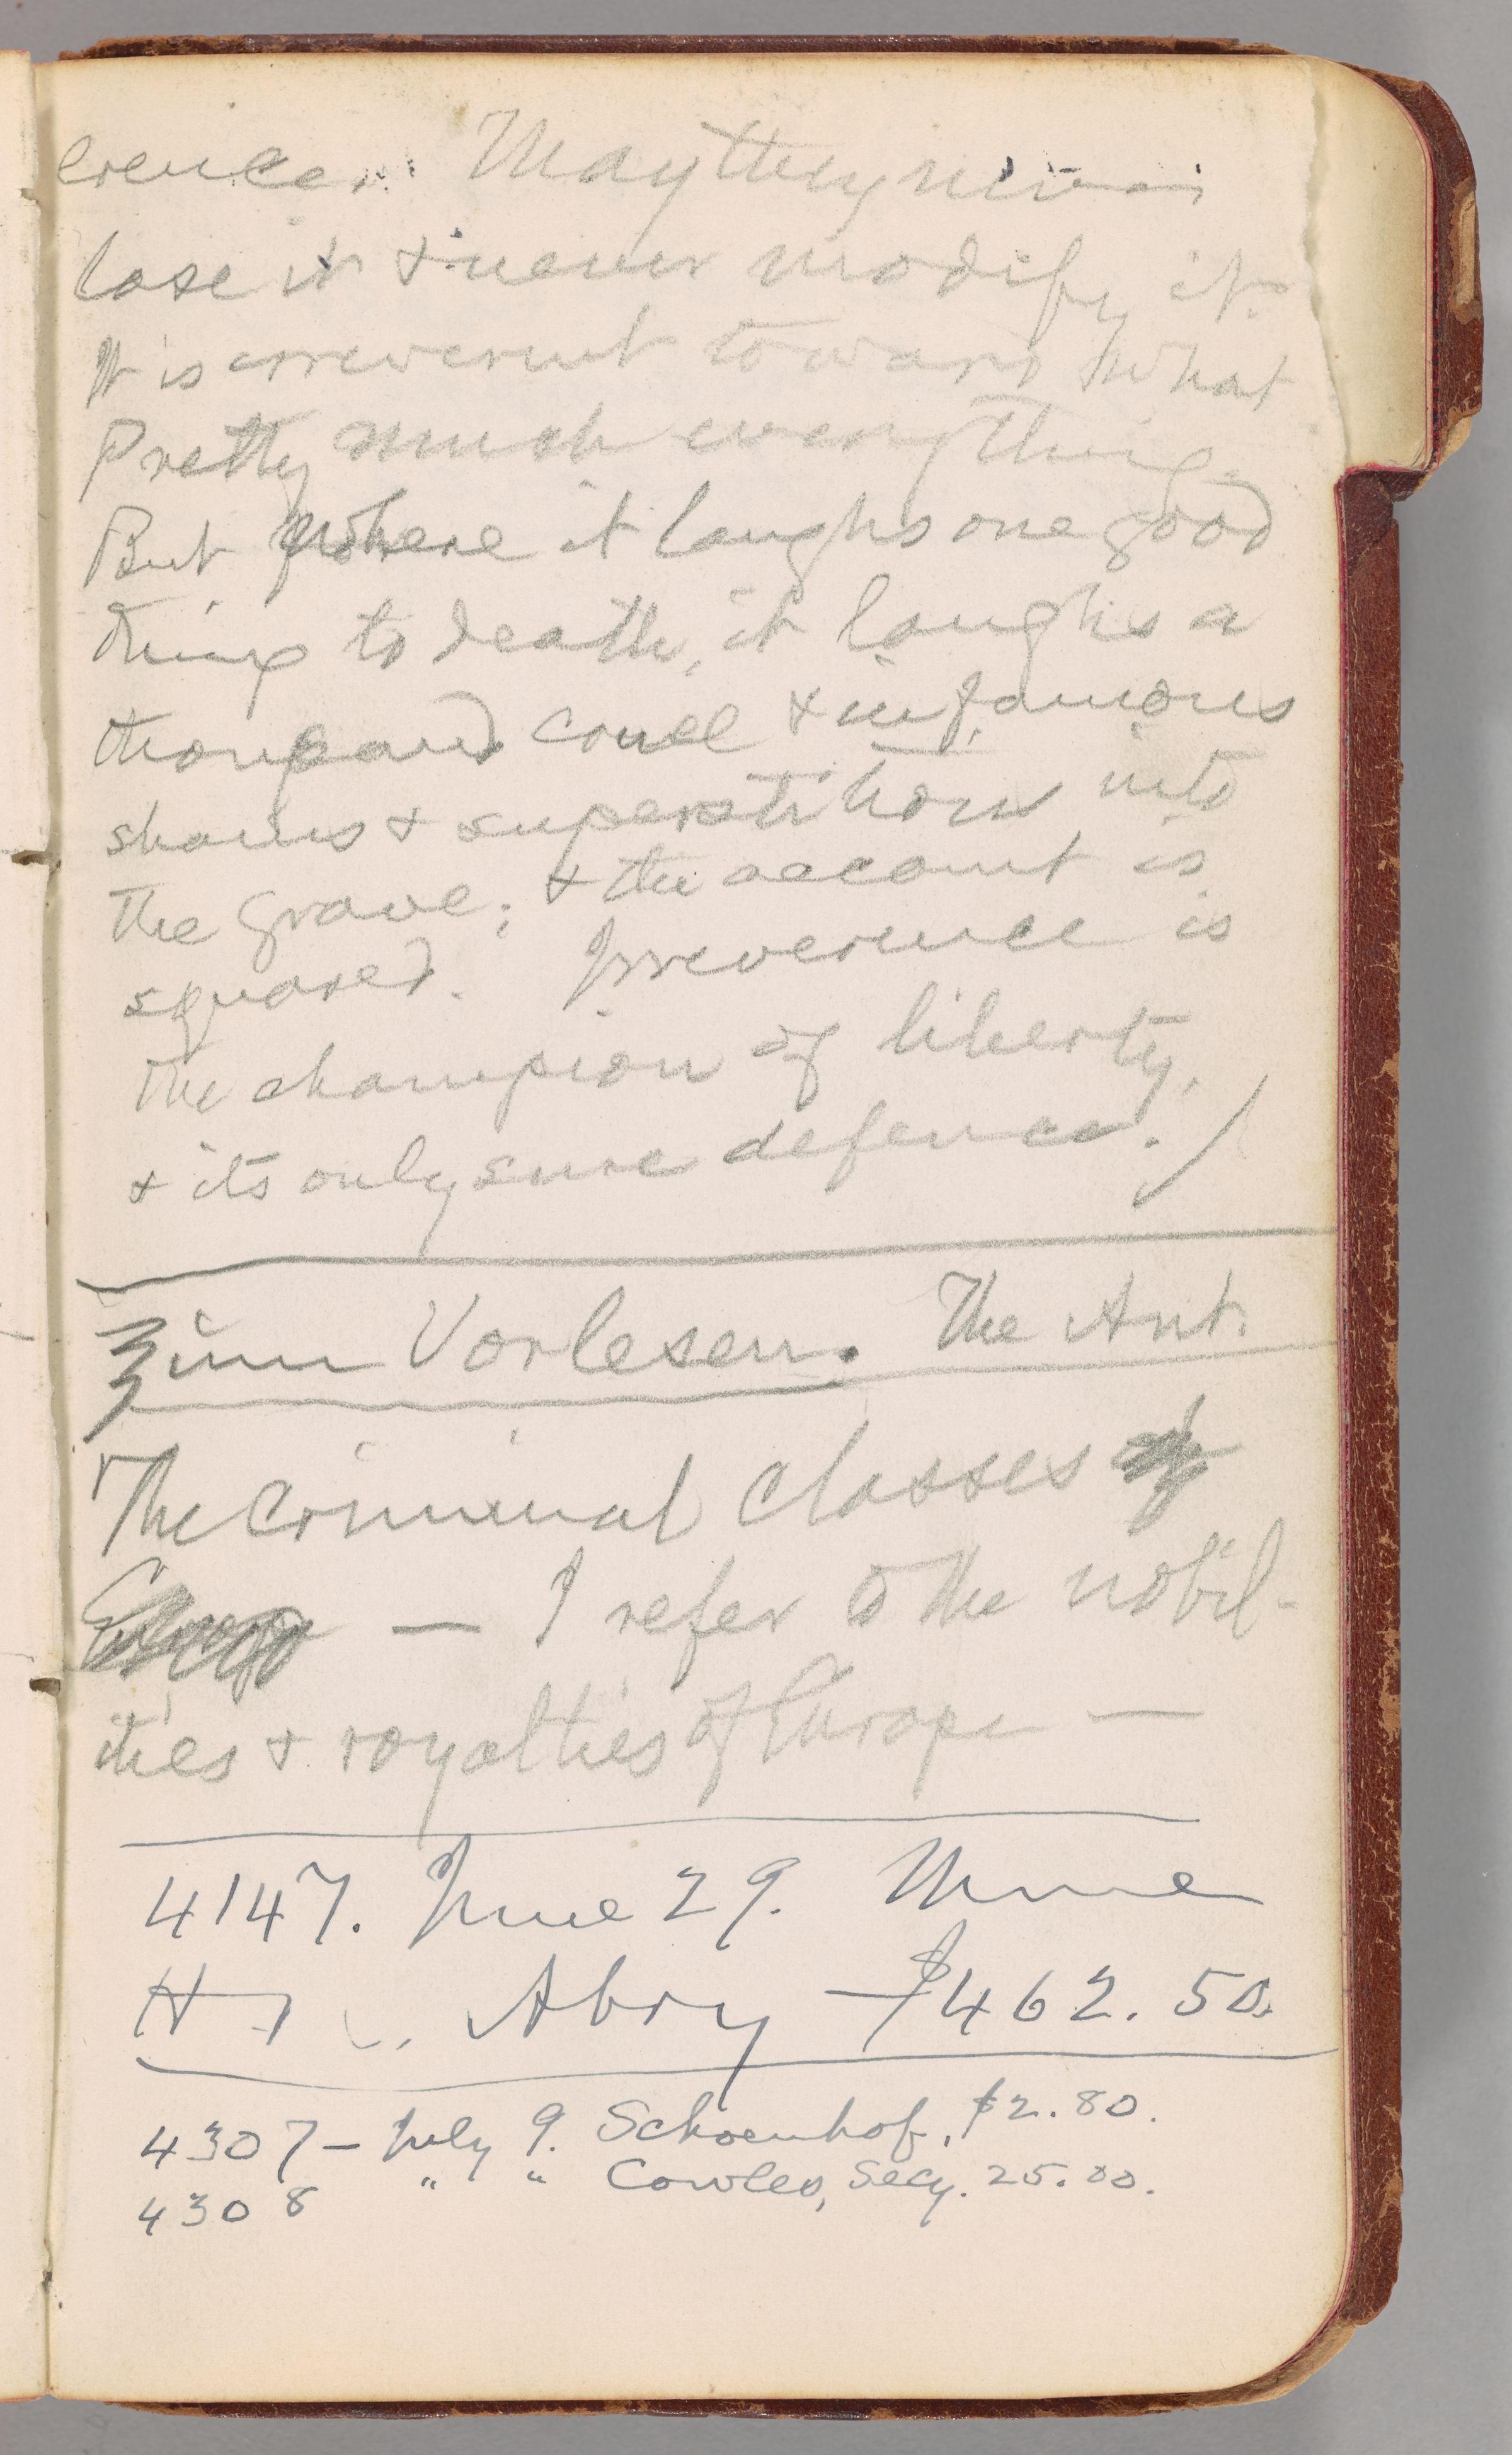 erence. May they never
lose it & never modify it.
It is irreverent toward what
Pretty much everything.
But where it laughs one good
thing to death, it laughs a
thousand cruel & infamous
shams & superstitions into
the grave; & the account is
squared. Irreverence is
the champion of liberty,
& its only sure defence. /
Zum Vorlesen. The Ant.
The Criminal Classes of
Europe — I refer to the nobil-
ities & royalties of Europe —
4147. June 29.
H Abry — $462.50.
4307 — July 9. Schoenhof, $2.80.
4308 " " Cowles, Secy. 25.00.